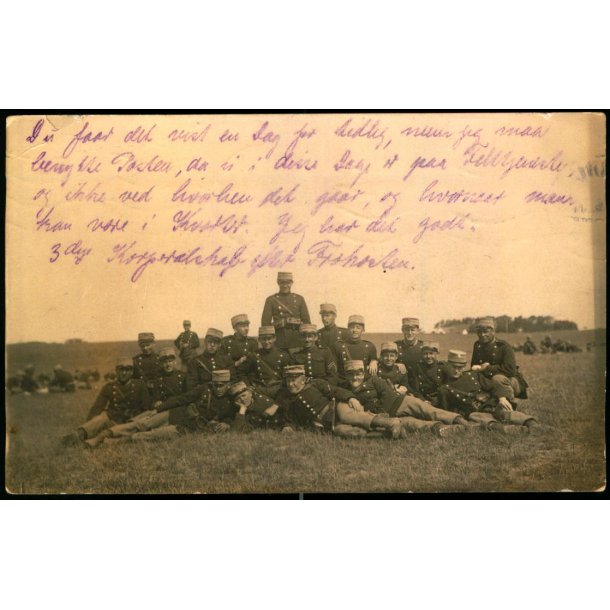 Du faar det vist en Dag for tidlig, men jeg maa
benytte Posten, da vi i disse Dage er paa Felttjeneste,
og ikke ved hvorhen det gaar, og hvornaar man
kan være i Kvarter. Jeg har det godt.
3die Korporalskab efter Frokosten.